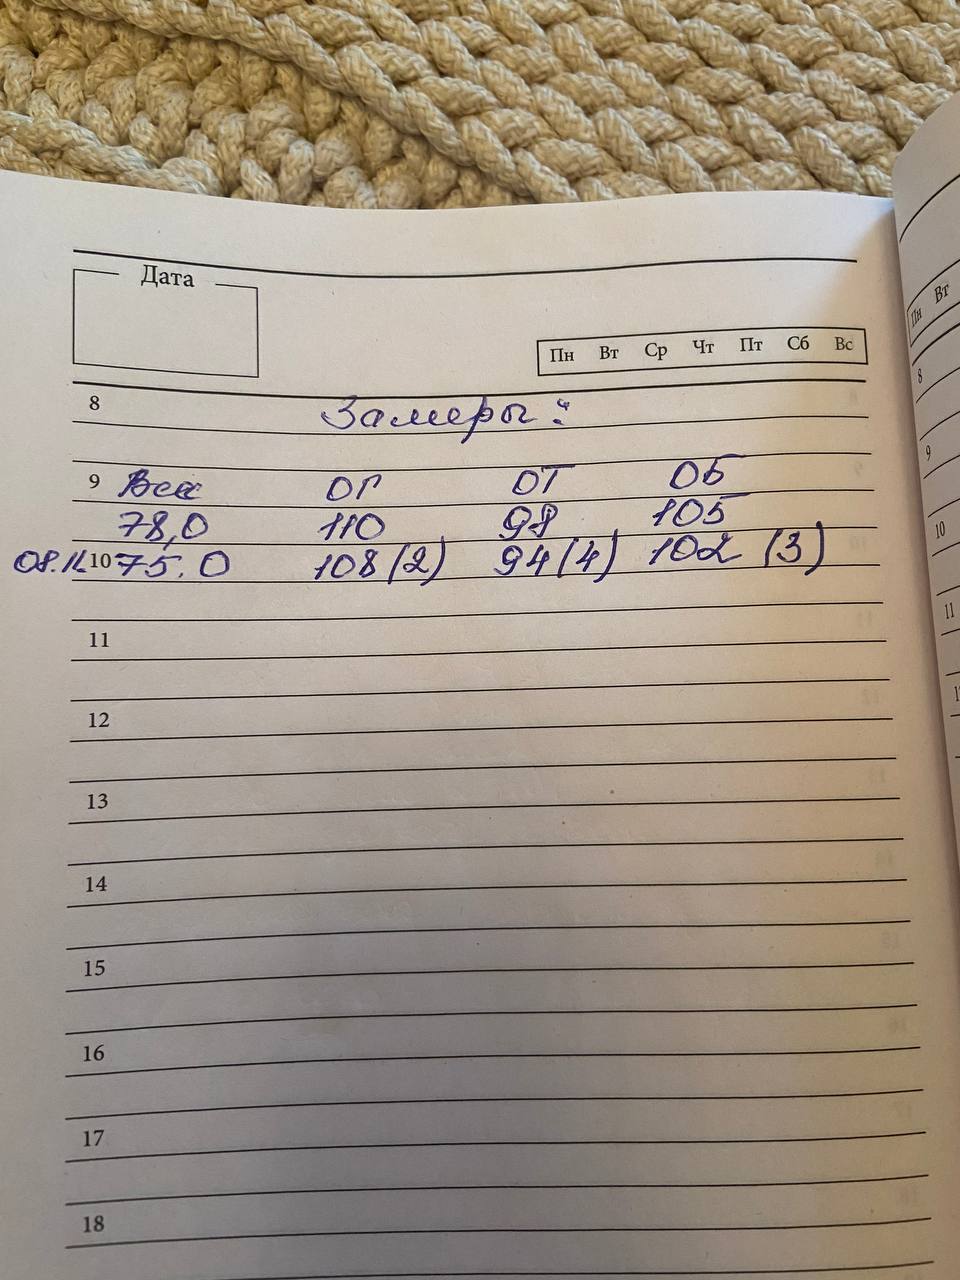 Дата
Пн Вт Ср Чт Пт Сб Вс
8 Замеры:
9 Вес ОГ ОТ ОБ
78,0 110 98 105
08.11. 10 75.0 108 (2) 94 (4) 102 (3)
11
12
13
14
15
16
17
18
Пн Вт
8
9
10
11